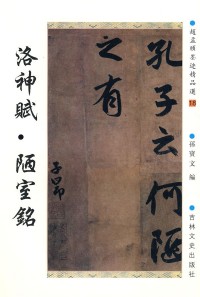 趙孟頫墨迹精品選
18
孫寶文 編
吉林文史出版社
孔子云何陋
之有
子昂
洛神賦·陋室銘